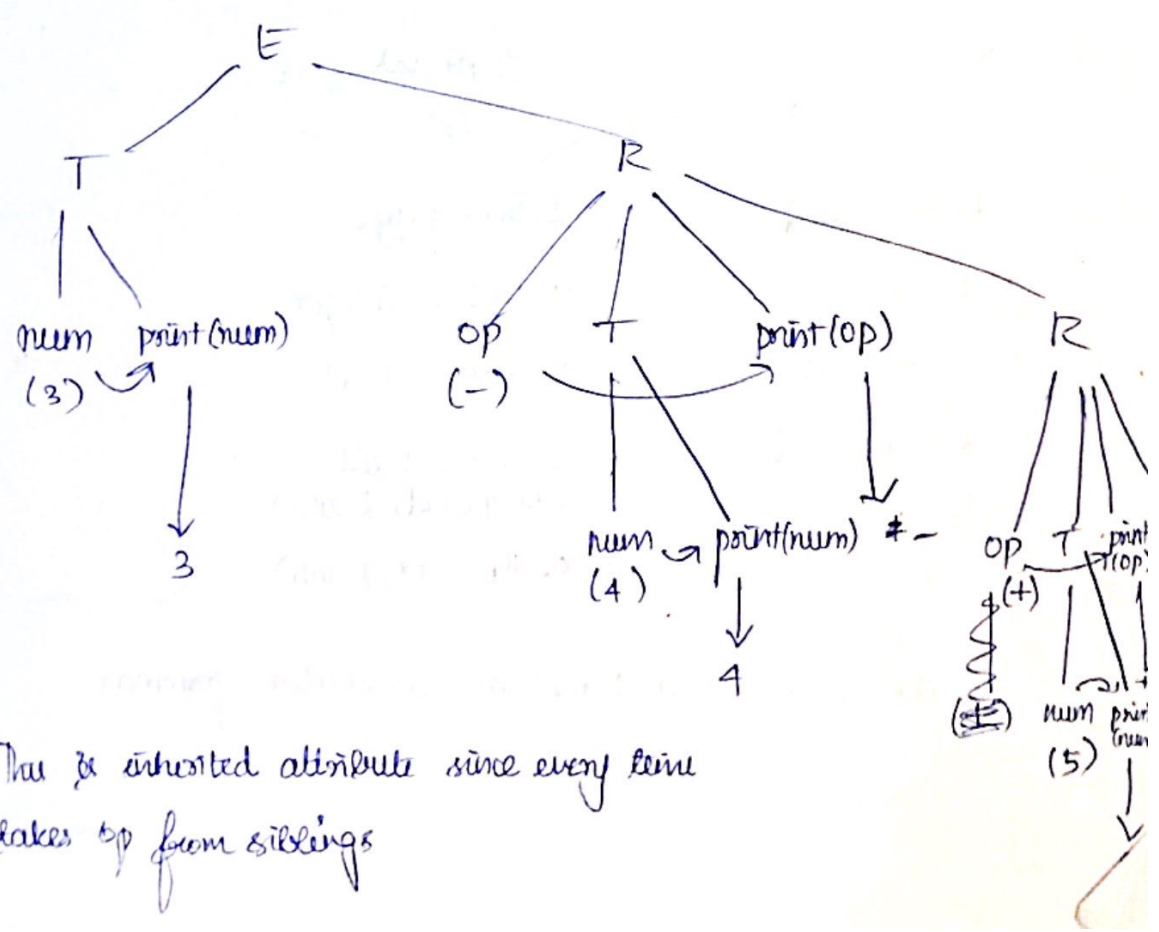 E
T R
num print(num) op T print(op) R
(3) (-)
3 num print(num) - op T print
(4) (+) (op)
4 num
(5)
This is inherited attribute since every time
takes op from siblings